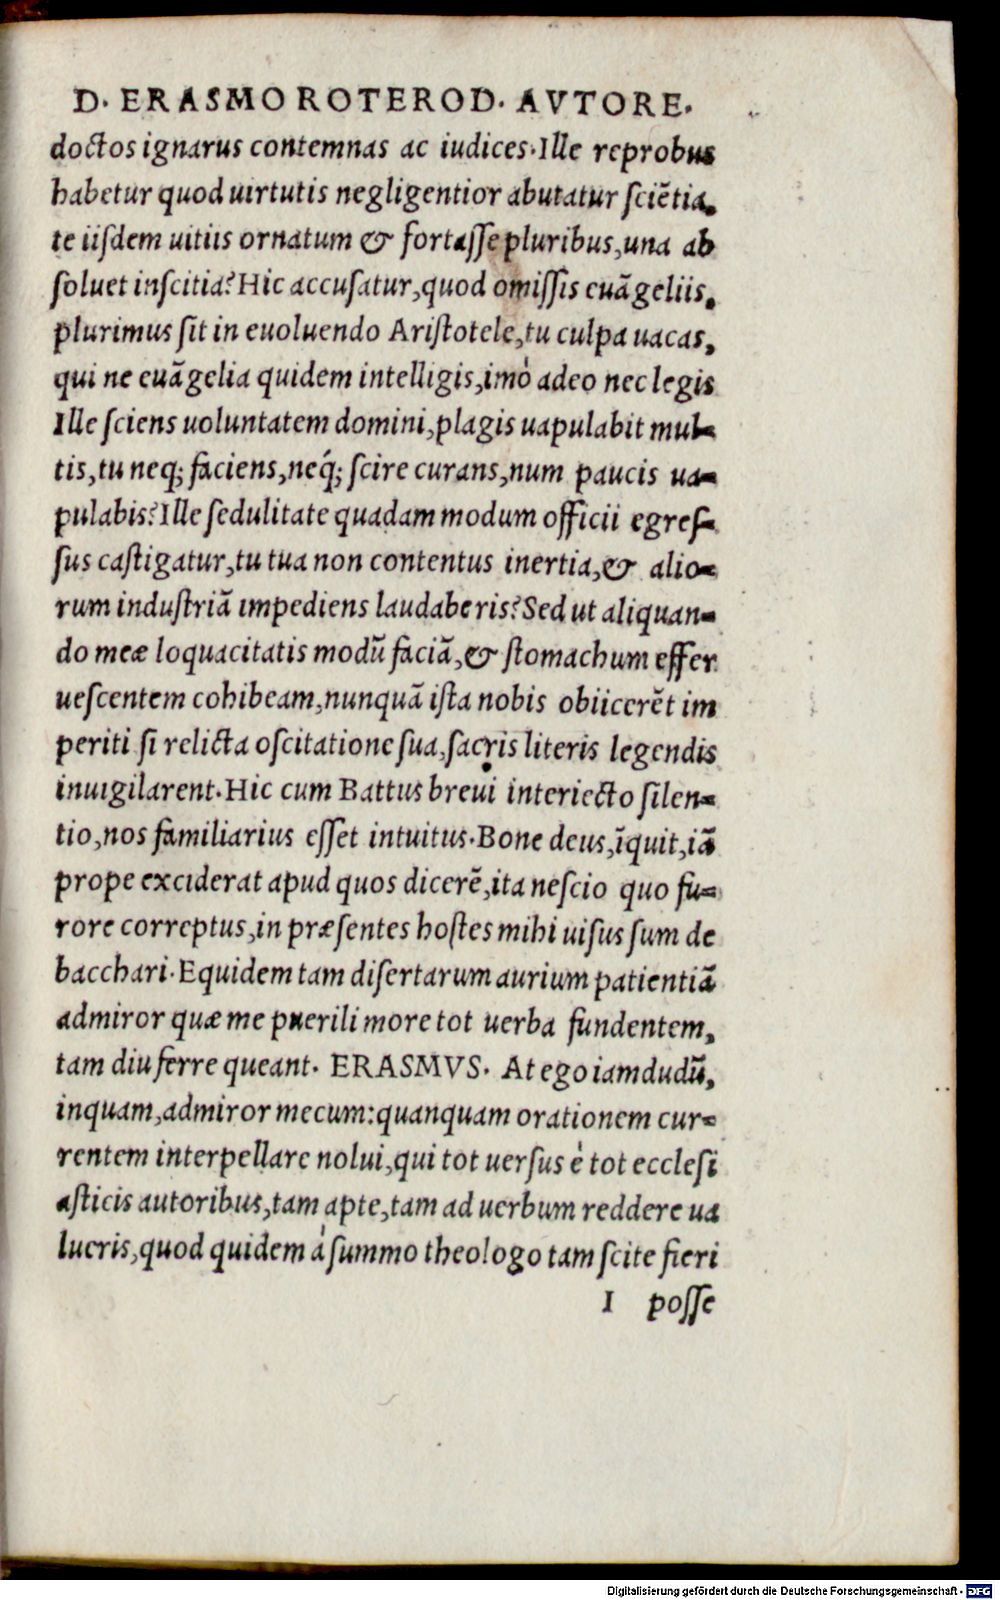 D. ERASMO ROTEROD. AVTORE.
doctos ignarus contemnas ac iudices. Ille reprobus
habetur quod uirtutis negligentior abutatur sciẽtia.
te iisdem uitiis ornatum & fortasse pluribus, una ab
soluet inscitia? Hic accusatur, quod omissis euãgeliis,
plurimus sit in euoluendo Aristotele, tu culpa uacas,
qui ne euãgelia quidem intelligis, imò adeo nec legis
Ille sciens uoluntatem domini, plagis uapulabit mul-
tis, tu neq; faciens, neq́; scire curans, num paucis ua-
pulabis? Ille sedulitate quadam modum officii egres-
sus castigatur, tu tua non contentus inertia, & alio-
rum industriã impediens laudaberis? Sed ut aliquan-
do meæ loquacitatis modũ faciã, & stomachum effer
uescentem cohibeam, nunquã ista nobis obiicerẽt im
periti si relicta oscitatione sua, sacris literis legendis
inuigilarent. Hic cum Battus breui interiecto silen-
tio, nos familiarius esset intuitus. Bone deus, ĩquit, iã
prope exciderat apud quos dicerẽ, ita nescio quo fu-
rore correptus, in præsentes hostes mihi uisus sum de
bacchari. Equidem tam disertarum aurium patientiã
admiror quæ me puerili more tot uerba fundentem,
tam diu ferre queant. ERASMVS. At ego iamdudũ,
inquam, admiror mecum: quanquam orationem cur-
rentem interpellare nolui, qui tot uersus è tot ecclesi
asticis autoribus, tam apte, tam ad uerbum reddere ua
lueris, quod quidem à summo theologo tam scite fieri
I posse
Digitalisierung gefördert durch die Deutsche Forschungsgemeinschaft - DFG